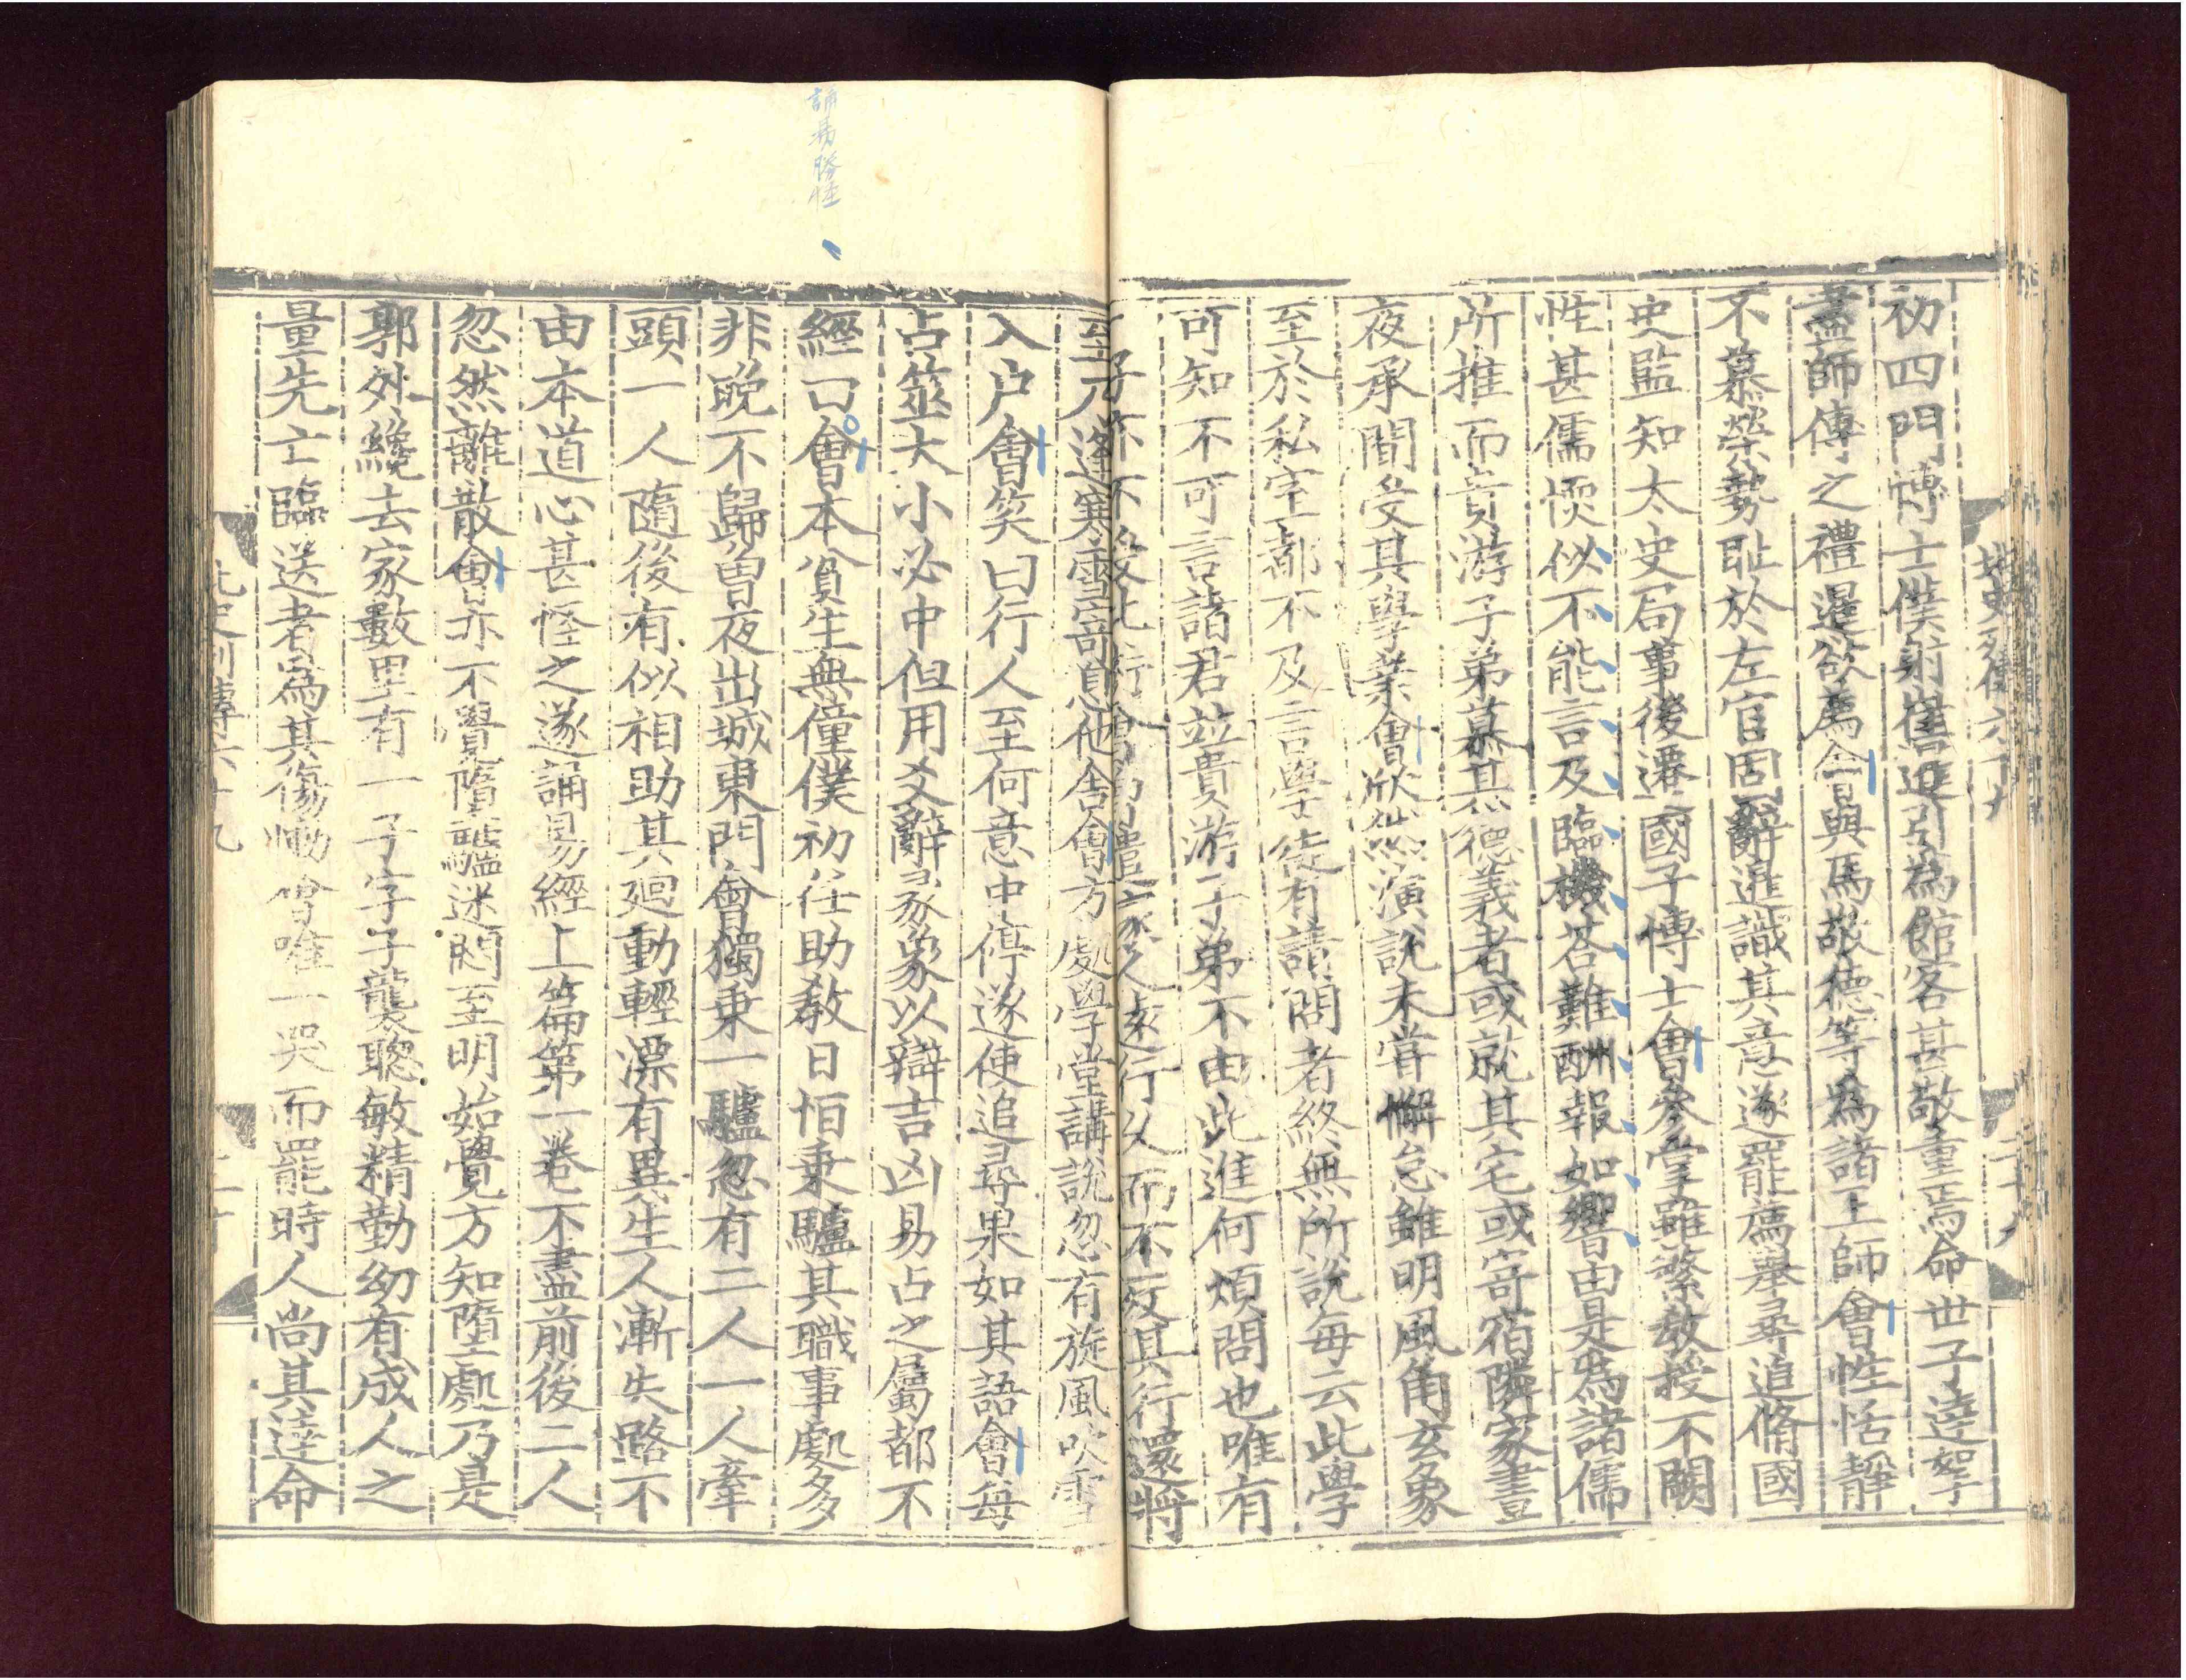 初四門博士僕射崔暹引為館客甚敬重焉命世子達拏
盡師傅之禮暹欲薦會與馬敬德等為諸王師會性恬靜
不慕榮勢恥於左官固辭暹識其意遂罷薦舉尋追脩國
史監知太史局事後遷國子博士會參掌雖繁教授不闕
性甚儒愞似不能言及臨機荅難酬報如響由是為諸儒
所推而貴游子弟慕其德義者或就其宅或寄宿隣家晝
夜承間受其學業會欣然演說未嘗懈怠雖明風角玄象
至於私室都不及言學徒有請問者終無所說每云此學
可知不可言諸君並貴游子弟不由此進何煩問也唯有
一子亦不授此術會曾遣家人遠行久而不反其行還將
至乃逢寒雪寄息他舍會方處學堂講說忽有旋風吹雪
入户會笑曰行人至何意中停遂使追尋果如其語會每
占筮大小必中但用爻辭彖象以辯吉凶易占之屬都不
經口會本貧生無僮僕初任助教日恒乗驢其職事處多
非晚不歸曾夜出城東門會獨乗一驢忽有二人一人牽
頭一人隨後有似相助其廻動輕漂有異生人漸失路不
由本道心甚怪之遂誦易經上篇第一卷不盡前後二人
忽然離散會亦不覺墮驢迷悶至明始覺方知墮處乃是
郭外纔去家數里有一子字子龔聰敏精勤幼有成人之
量先亡臨送者為其傷慟會唯一哭而罷時人尚其達命
北史列傳六十九
誦易勝怪